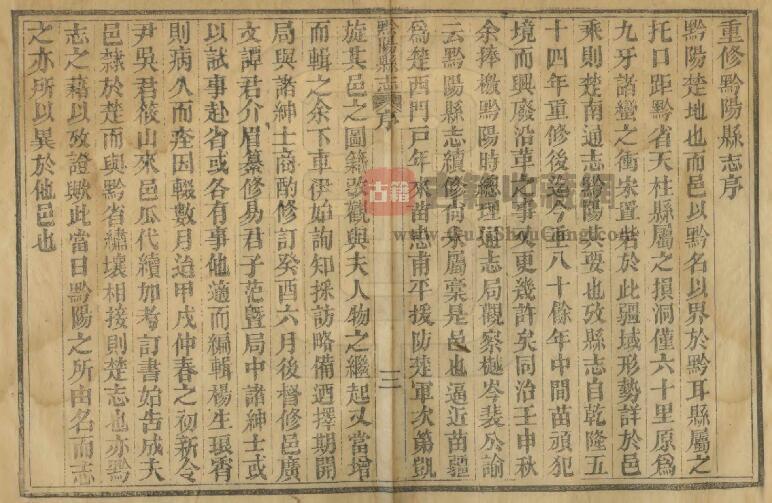 重修黔陽縣志序
黔陽楚地也而邑以黔名以界於黔耳縣屬之
托口距黔省天柱縣屬之損洞僅六十里原為
九牙諸蠻之衝宋置砦於此疆域形勢詳於邑
乘則楚南通志黔陽其要也攷縣志自乾隆五
十四年重修後迄今垂八十餘年中間苗頑犯
境而興廢沿革之事又更幾許矣同治壬申秋
余捧檄黔陽時總理通志局觀察樾岑裴公諭
云黔陽縣志續修尚未屬稾是邑也逼近苗疆
為楚西門戶年來苗患甫平援防楚軍次第凱
黔陽縣志 序 三
旋其邑之圖籍要觀與夫人物之繼起又當增
而輯之余下車伊始詢知採訪略備迺擇期開
局與諸紳士商酌修訂癸酉六月後督修邑廣
文譚君介眉纂修易君子范暨局中諸紳士或
以試事赴省或各有事他適而編輯楊生珢霄
則病久而痊因輟數月迨甲戌仲春之初新令
尹吳君筱山來邑瓜代續加考訂書始告成夫
邑隸於楚而與黔省繡壤相接則楚志也亦黔
志之藉以攷證歟此當日黔陽之所由名而志
之亦所以異於他邑也
古籍收藏網
www.GuJiShouCang.com